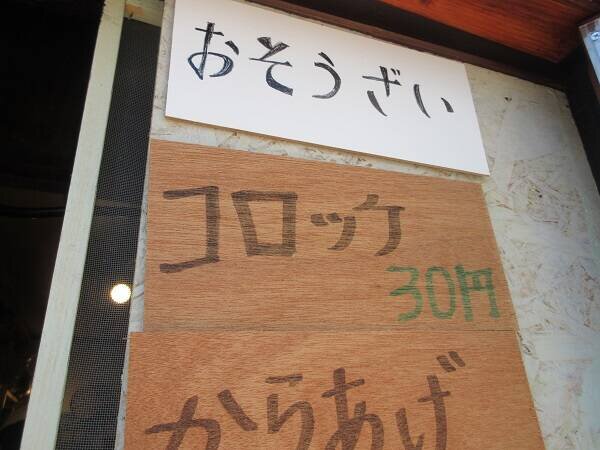 おそうざい
コロッケ
30円
からあげ